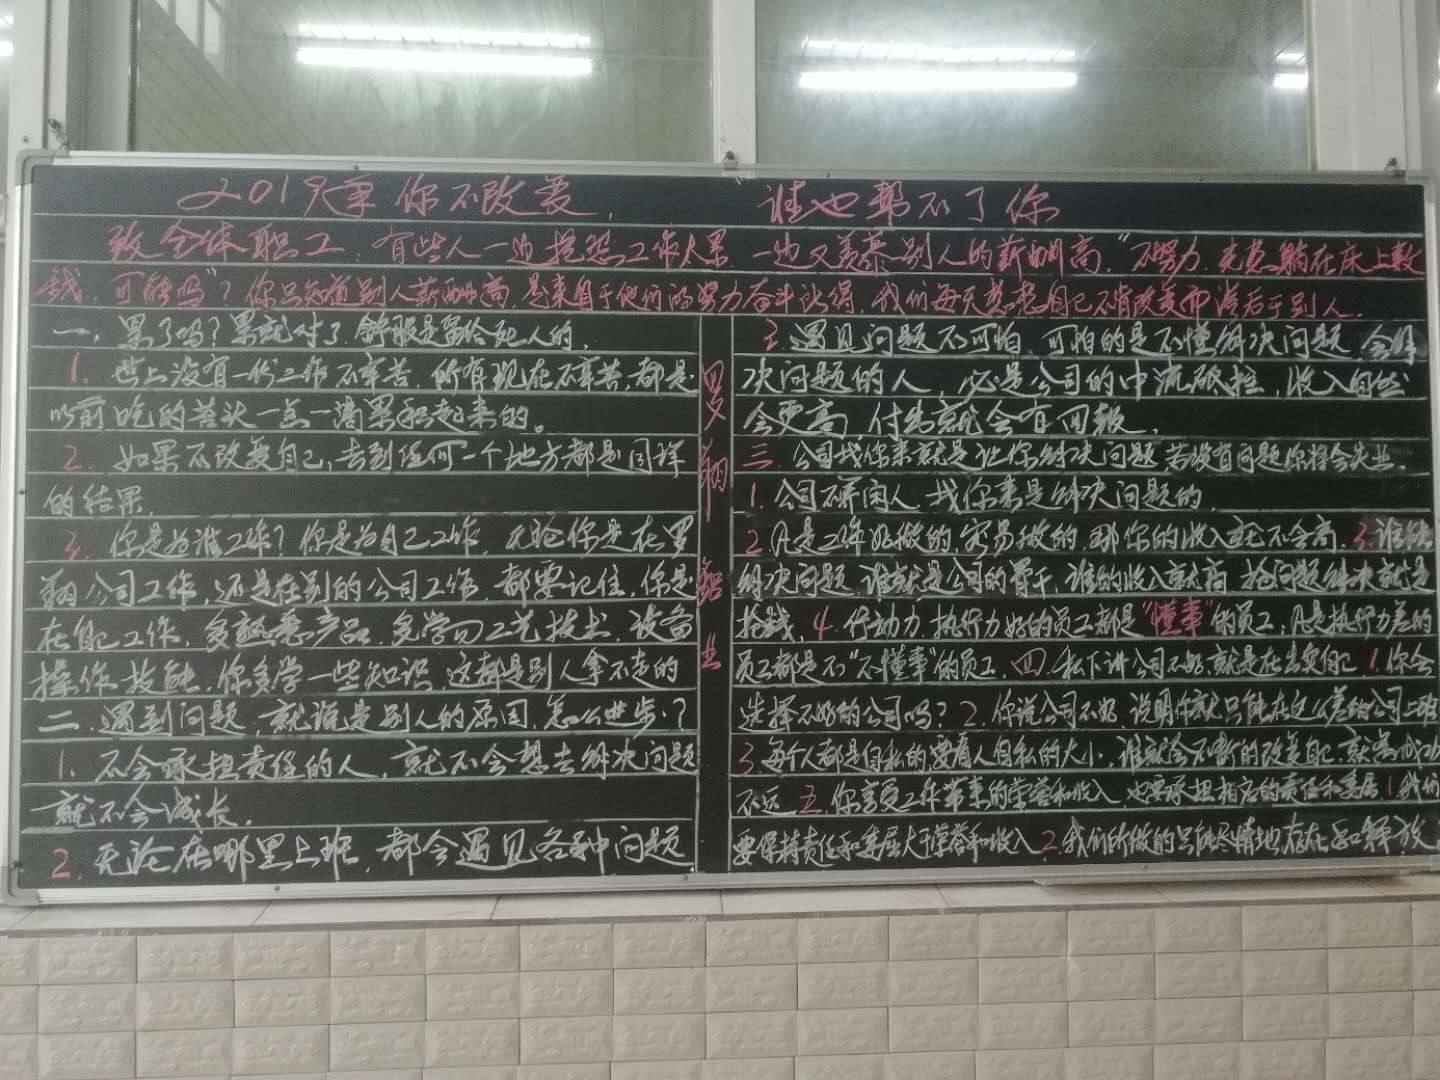 2019年 你不改变， 谁也帮不了你
致全体职工：有些人一边抱怨工作太累 一边又羡慕别人的薪酬高，“不努力，光想躺在床上数
钱，可能吗”？你只知道别人薪酬高，是来自于他们的努力奋斗所得，我们每天想着自己不肯改变而落后于别人．
一，累了吗？累就对了，舒服是留给死人的，
1．世上没有一份工作不辛苦，所有现在不辛苦，都是
以前吃的苦头一点一滴累积起来的。
2．如果不改变自己，去到任何一个地方都是同样
的结果．
3．你是为谁工作？你是为自己工作，无论你是在罗
翔公司工作，还是在别的公司工作，都要记住，你是
在自己工作，多熟悉产品，多学习工艺技术，设备
操作技能，你多学一些知识，这都是别人拿不走的
二．遇到问题，就说是别人的原因，怎么进步？
1．不会承担责任的人，就不会想去解决问题
就不会成长，
2．无论在哪里上班，都会遇见各种问题
罗翔铝业
3．遇见问题不可怕，可怕的是不懂解决问题，会解
决问题的人，必是公司的中流砥柱，收入自然
会更高，付出就会有回报，
三．公司找你来就是让你解决问题，若没有问题你将会失业．
1．公司不养闲人，找你来是解决问题的，
2．凡是工作好做的，容易做的，那你的收入就不会高，3．谁能
解决问题，谁就是公司的骨干，谁的收入就高，抢问题解决就是
抢钱，4．行动力，执行力好的员工都是“懂事”的员工，凡是执行力差的
员工都是不“不懂事”的员工．四．私下讲公司不好，就是在出卖自己 1．你会
选择不好的公司吗？2．你说公司不好，说明你就只能在这么差的公司上班
3．每个人都是自私的，要看人自私的大小，谁就会不断的改变自己，就离成功
不远 五．你享受工作带来的荣誉和收入，也要承担相应的责任和委屈 1．我们
要保持责任和委屈大于荣誉和收入 2．我们所做的只能尽情地存在和释放